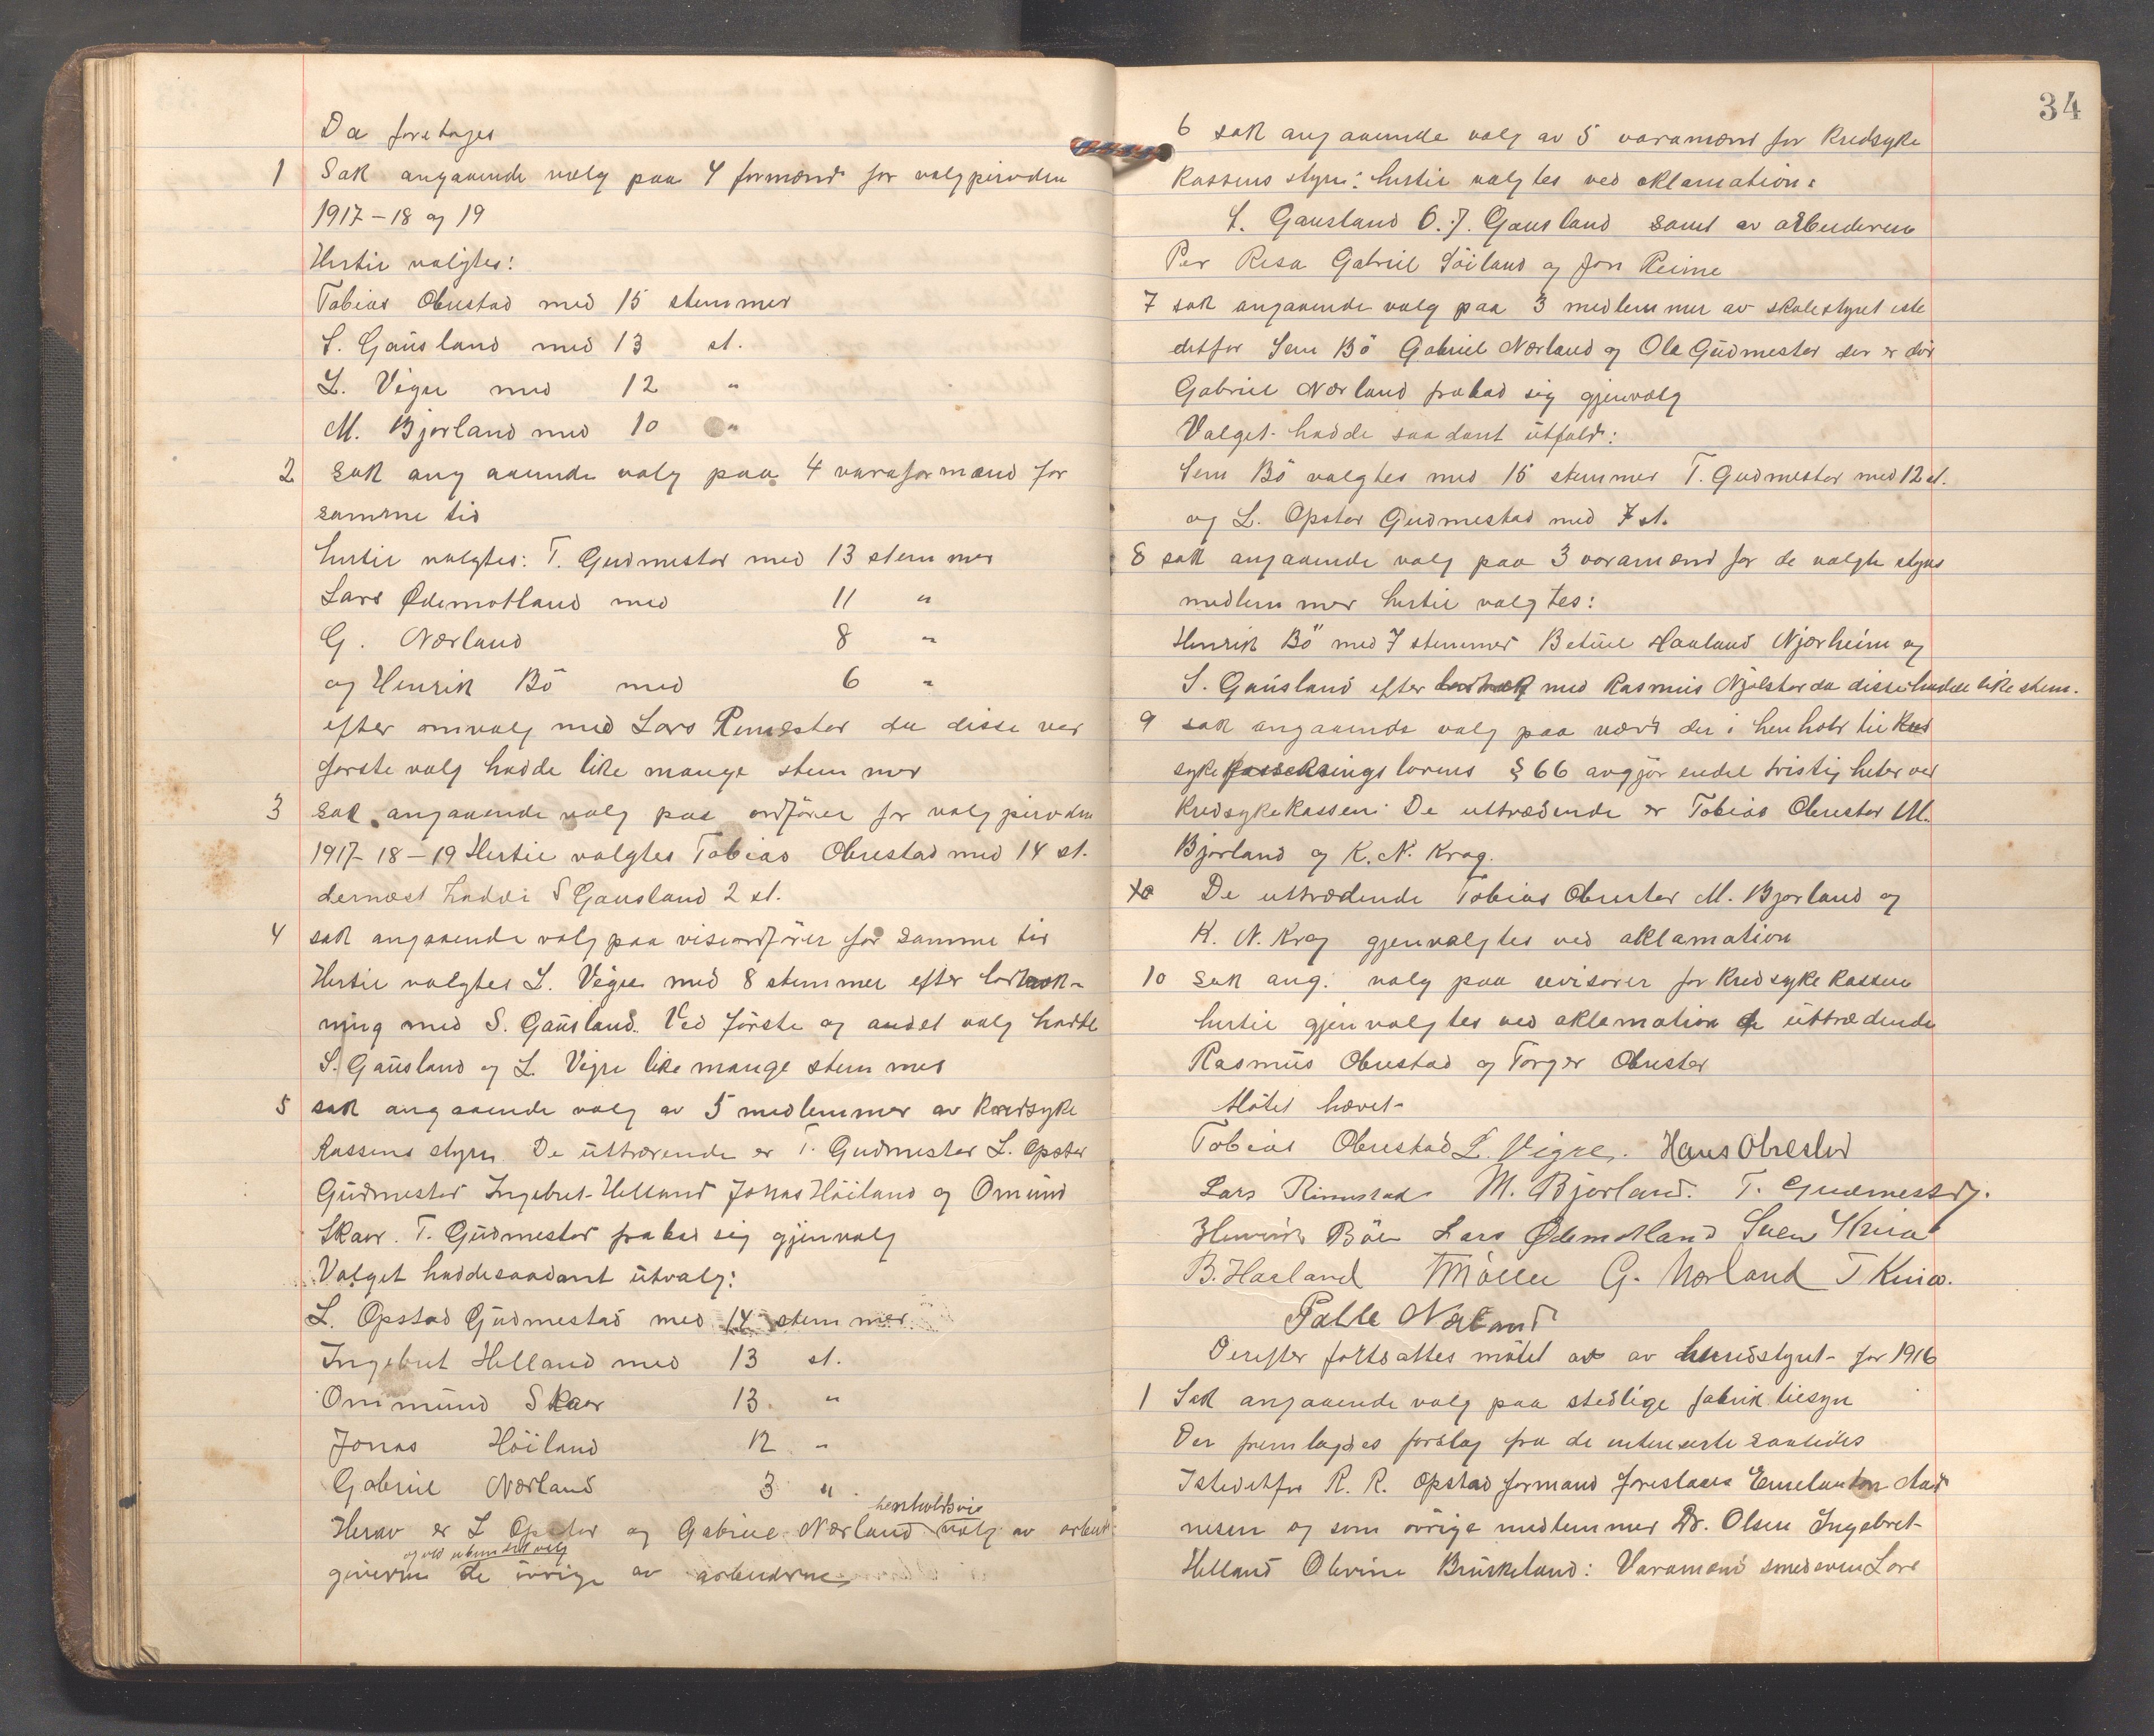 Da foretages
1 Sak angaaende valg paa 4 formænd for valgperioden
1917-18 og 19
Hertil valgtes:
Tobias Obrestad med 15 stemmer
S. Gausland med 13 st.
L. Vigre med 12 "
M. Bjorland med 10 "
2 Sak angaaende valg paa 4 varaformænd for
samme tid
hertil valgtes: T. Gudmestad med 13 stemmer
Lars Ødemotland med 11 "
G. Nærland 8 "
og Henrik Bö med 6 "
efter omvalg med Lars Rimestad da disse ved
første valg hadde like mange stemmer
3 Sak angaaende valg paa ordfører for valgperioden
1917-18-19 Hertil valgtes Tobias Obrestad med 14 st.
dernæst hadde S Gausland 2 st.
4 sak angaaende valg paa viseordfører for samme tid
Hertil valgtes L. Vigre med 8 stemmer efter lodtræk-
ning med S. Gausland. Ved förste og andet valg hadde
S. Gausland og L. Vigre like mange stemmer
5 sak angaaende valg av 5 medlemmer av kredssyke
kassens styre. De uttrædende er T. Gudmestad L. Opstad
Gudmestad Ingebret Helland Jonas Höiland og Omund
Skaar. T. Gudmestad frabad sig gjenvalg
Valget hadde saadant utvalg:
L. Opstad Gudmestad med 14 stemmer
Ingebret Helland med 13 st.
Ommund Skaar 13 "
Jonas Höiland 12 "
Gabriel Nærland 3 "
henholdsvis
Herav er L Opstad og Gabriel Nærland valg av arbeids
og ved utendelt valg
giverne de övrige av arbeiderne
34
6 sak angaaende valg av 5 varamænd for kredssyke
kassens styre: hertil valgtes ved aklamation:
S. Gausland O. J. Gausland samt av arbeiderne
Per Risa Gabriel Söiland og Jon Reime
7 sak angaaende valg paa 3 medlemmer av skolestyret iste
detfor Sem Bö Gabriel Nærland og Ola Gudmestad der er död
Gabriel Nærland frabad sig gjenvalg
Valget hadde saadant utfald:
Sem Bö valgtes med 15 stemmer T. Gudmestad med 12 st.
og L. Opstad Gudmestad med 7 st.
8 sak angaaende valg paa 3 varamænd for de valgte styres
medlemmer hertil valgtes:
Henrik Bö med 7 stemmer Betuel Haaland Njærheim og
S. Gausland efter lodtræk med Rasmus Njölstad da disse hadde like stem.
9 sak angaaende valg paa nævd der i henhold til
syke lovens § 66 avgjör endel tvistigheter ved
kredssykekassen. De uttrædende er Tobias Obrestad M.
Bjorland og K. N. Krag.
De uttrædende Tobias Obrestad M. Bjorland og
K. N. Krag gjenvalgtes ved aklamation
10 Sak ang. valg paa revisorer for kredssykekassen
hertil gjenvalgtes ved aklamation de uttrædende
Rasmus Obrestad og Torger Obrestad
Mötet hævet
Tobias Obrestad L. Vigre. Hans Obrestad
Lars Rimestad M. Bjorland. T. Gudmestad.
Henrik Böe Lars Ødemotland Sven Kvia
B. Haaland G. Nærland T Kvia.
Palle Nærland
Derefter fortsattes mötet av herredstyret for 1916
1 Sak angaaende valg paa stedlige fabriktilsyn
Der fremlagdes forslag fra de interesserte saaledes
Istedetfor R. R. Opstad formand foreslaaes Emelanton Aad
nesen og som övrige medlemmer Dr. Olsen Ingebret
Helland Olevine Bruskeland: Varamænd smedsven Lars